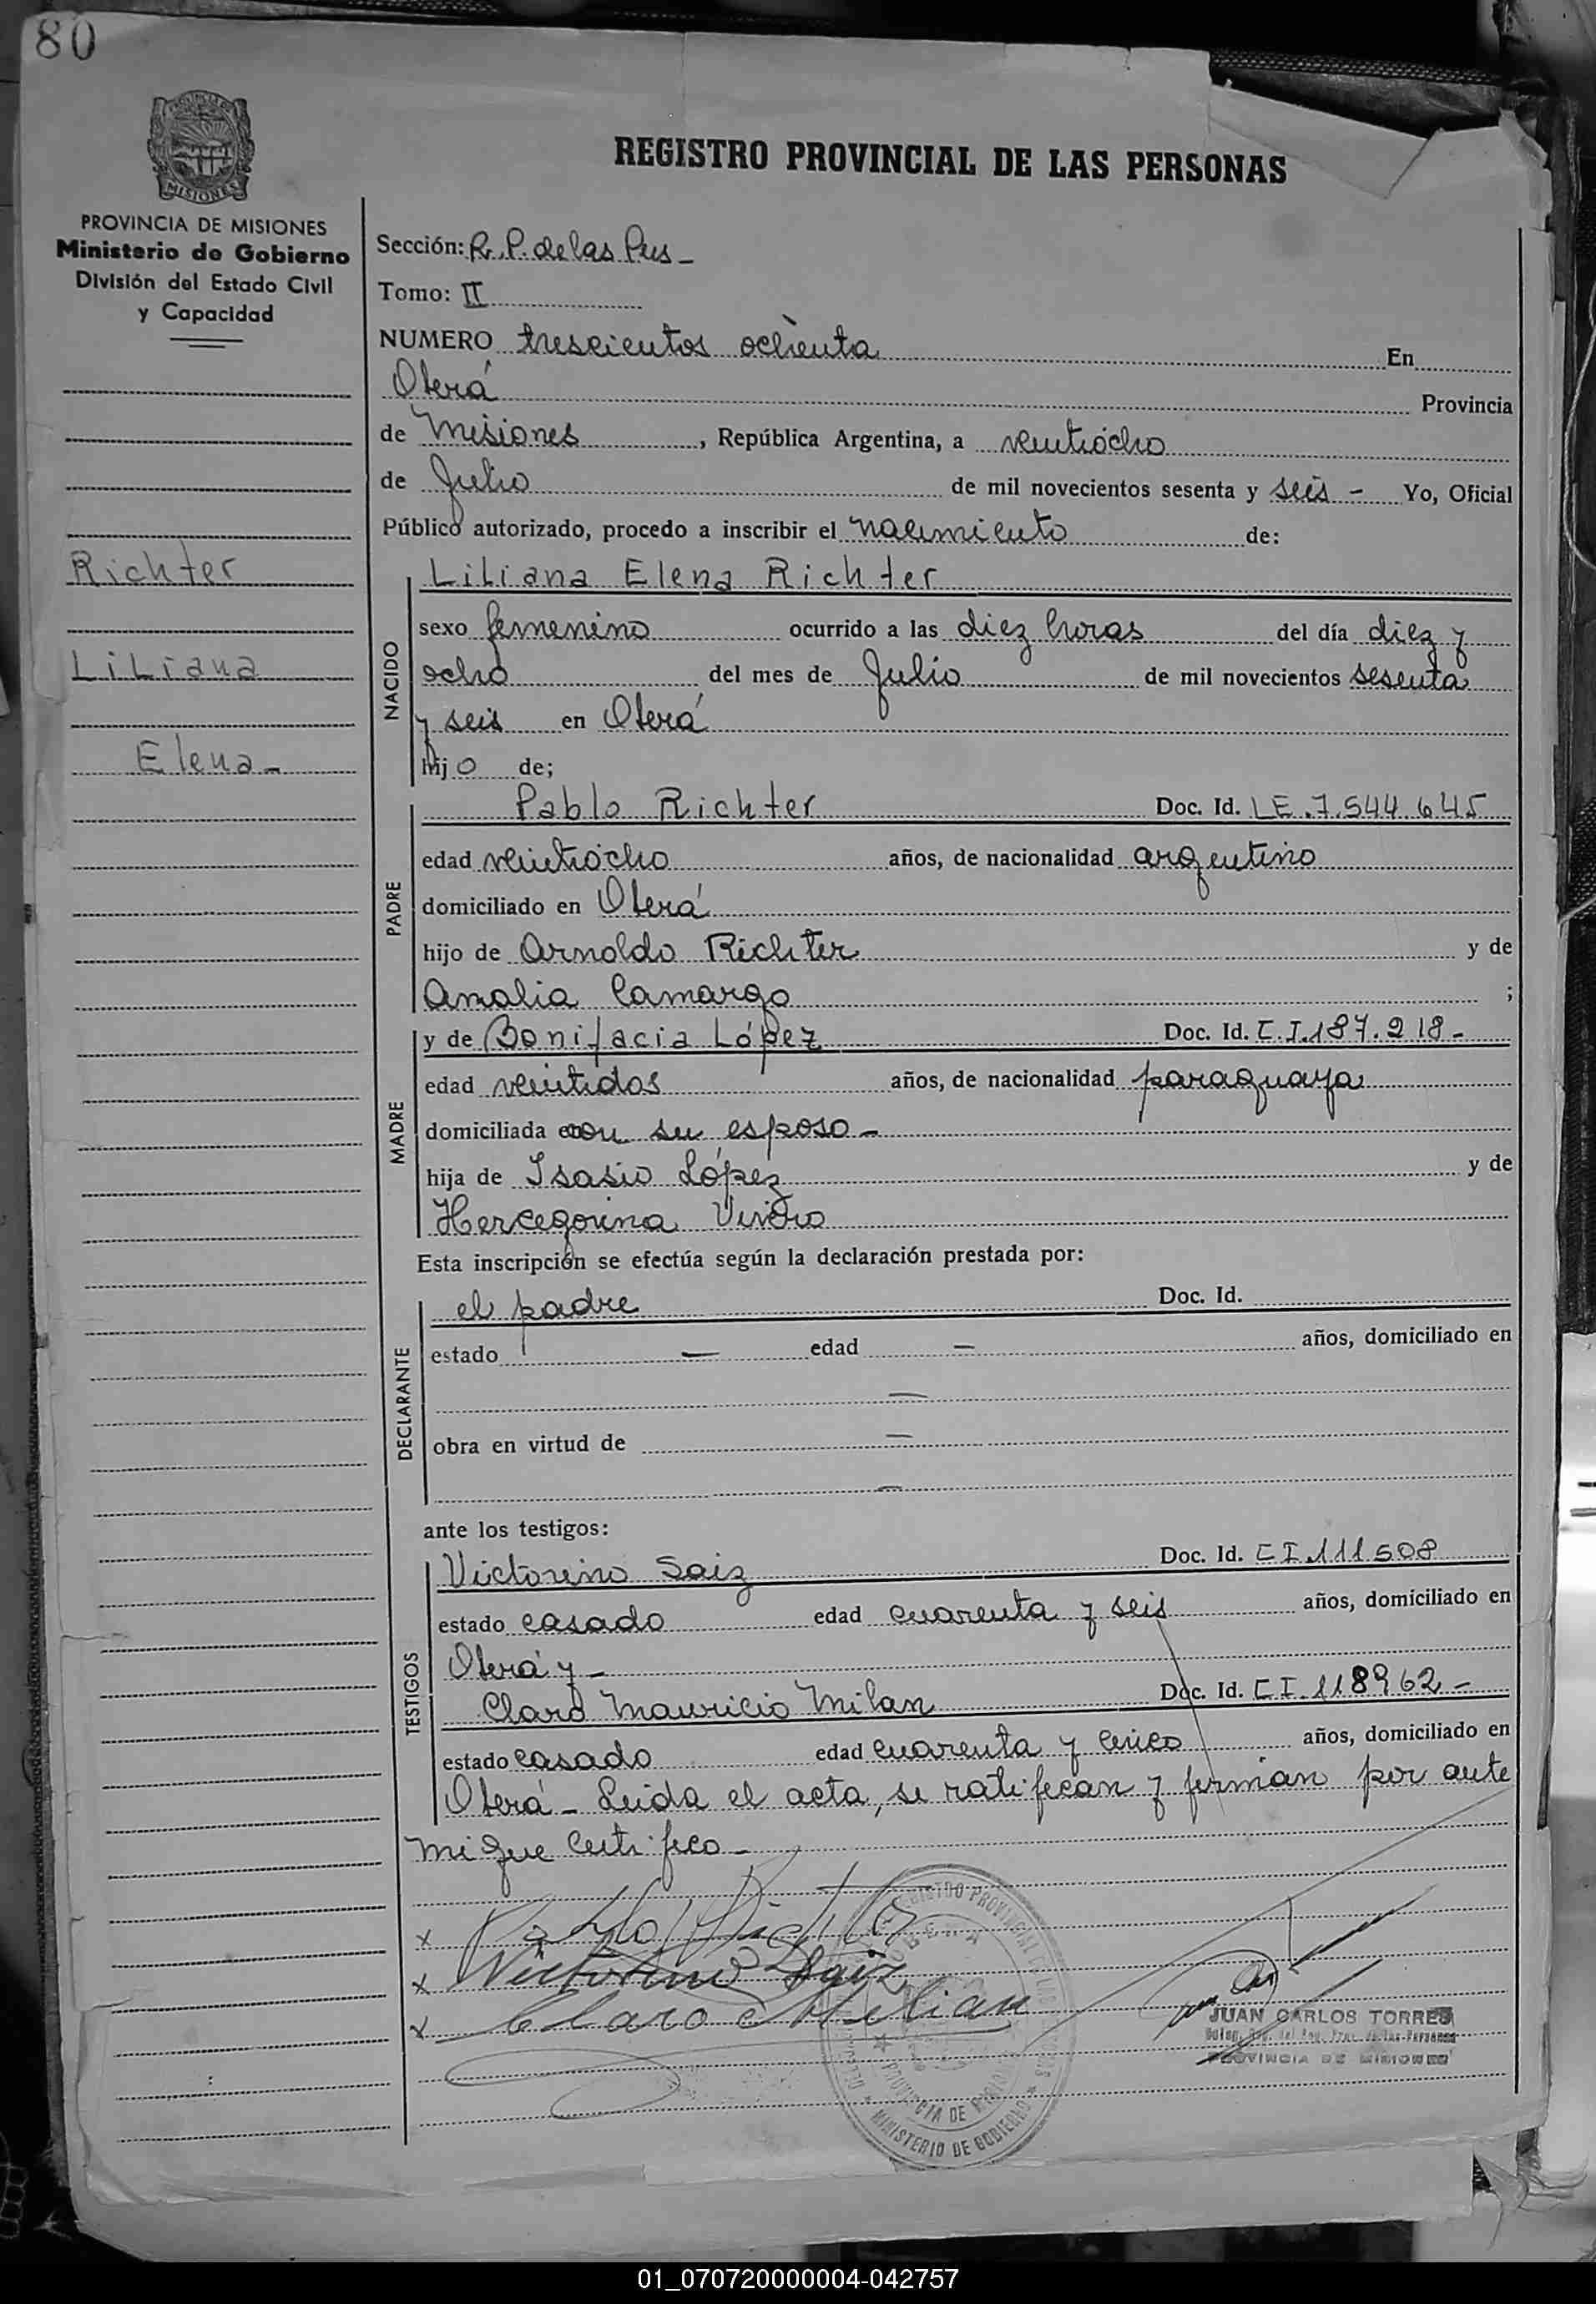 80
MISIONES
PROVINCIA DE MISIONES
Ministerio de Gobierno
División del Estado Civil
y Capacidad
Richter
Liliana
Elena-
REGISTRO PROVINCIAL DE LAS PERSONAS
Sección: R. P. de las Pers -
Tomo: II
NUMERO trescientos ochenta En
Oberá Provincia
de Misiones, República Argentina, a veintiocho
de Julio de mil novecientos sesenta y seis - Yo, Oficial
Público autorizado, procedo a inscribir el nacimiento de:
NACIDO
Liliana Elena Richter
sexo femenino ocurrido a las diez horas del día diez y
ocho del mes de Julio de mil novecientos sesenta
y seis en Oberá
hijo de;
PADRE
Pablo Richter Doc. Id. LE.7.544.645
edad veintiocho años, de nacionalidad argentino
domiciliado en Oberá
hijo de Arnoldo Richter y de
Amalia Camargo ;
MADRE
y de Bonifacia López Doc. Id. C.I.187.218-
edad veintidos años, de nacionalidad paraguaya
domiciliada con su esposo -
hija de Isasio López y de
Hercegovina
Esta inscripción se efectúa según la declaración prestada por:
DECLARANTE
el padre Doc. Id.
estado — edad — años, domiciliado en
—
obra en virtud de —
—
ante los testigos:
TESTIGOS
Victorino Saiz Doc. Id. C I.111.508
estado casado edad cuarenta y seis años, domiciliado en
Oberá y -
Claro Mauricio Milan Doc. Id. C I.118962-
estado casado edad cuarenta y cinco años, domiciliado en
Oberá - Leida el acta, se ratifican y firman por ante
mi que certifico -
x Pablo Richter
x Victorino Saiz
x Claro Melian
REGISTRO PROVINCIAL DE LAS PERSONAS
PROVINCIA DE MISIONES
MINISTERIO DE GOBIERNO
JUAN CARLOS TORRES
PROVINCIA DE MISIONES
01_070720000004-042757